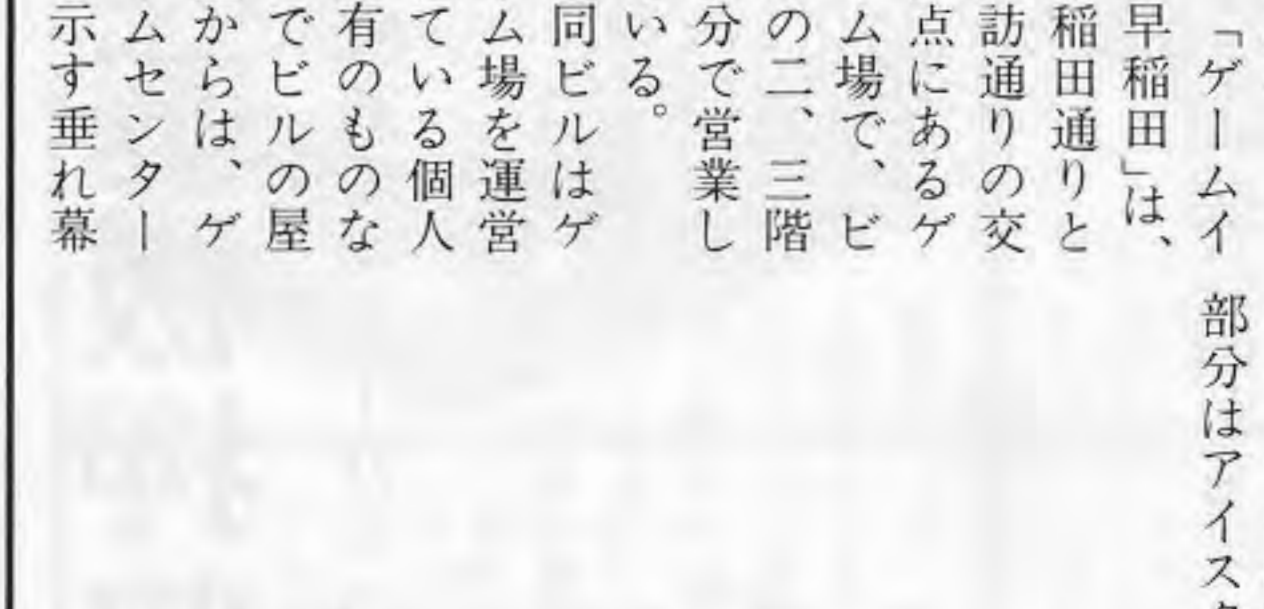 「ゲームイ
早稲田」は、
稲田通りと
訪通りの交
点にあるゲ
ム場で、ビ
の二、三階
分で営業し
いる。
同ビルはゲ
ム場を運営
ている個人
有のものな
でビルの屋
からは、ゲ
ムセンター
示す垂れ幕
部分はアイス